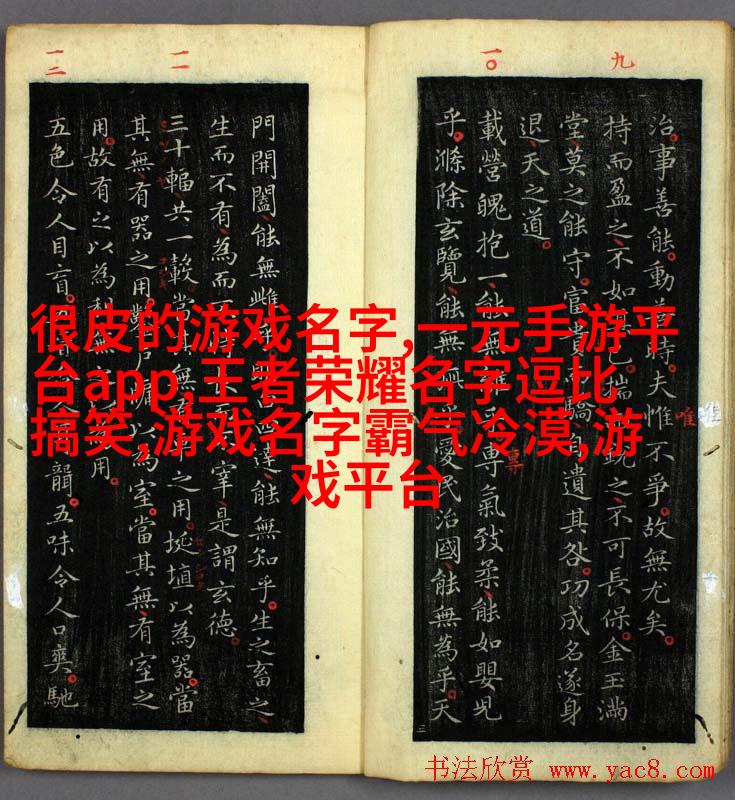 九
一〇
治事善能動善時夫惟不爭故無尤矣
持而盈之不如已揣銳之不可長保金玉滿
堂莫之能守富貴驕自遺其咎功成名遂身
退天之道
載營魄抱一能無離乎專氣致柔能如嬰兒
乎滌除玄覽能無愛民治國能無為乎天
唯
一一
一二
門開闔能無雌達能無知乎生之畜之
生而不有為而不宰是謂玄德
三十輻共一轂當其無之用埏埴以為器當
其無有器之用鑿户牖以為室當其無有室之
用故有之以為利無用
五色令人目盲聾五味令人口爽馳
很皮的游戏名字,一元手游平
台app,王者荣耀名字逗比
搞笑,游戏名字霸气冷漠,游
戏平台
书法欣赏 www.yac8.com